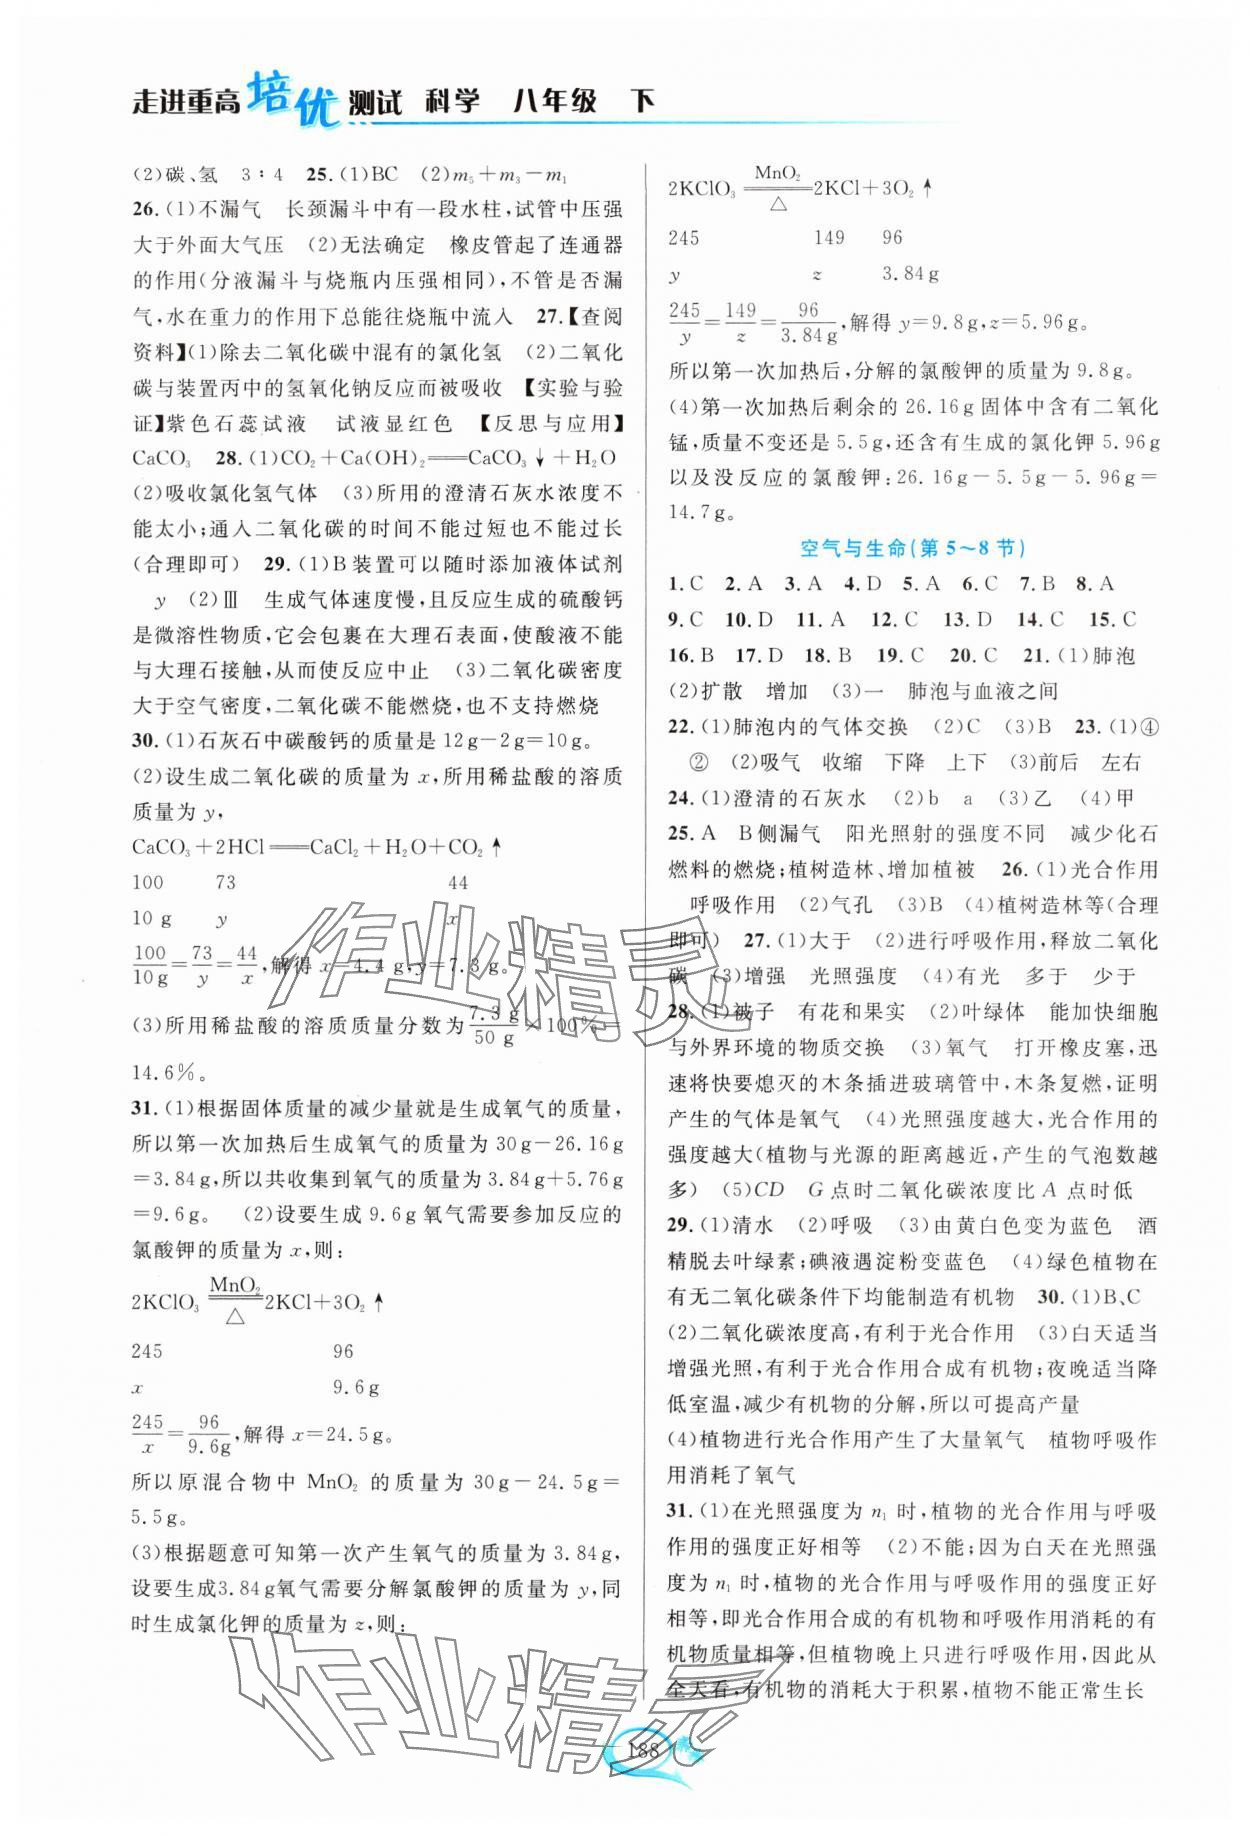 走进重高培优测试 科学 八年级 下
(2)碳、氢 3∶4 25.(1)BC (2)m₅+m₃-m₁
26.(1)不漏气 长颈漏斗中有一段水柱,试管中压强
大于外面大气压 (2)无法确定 橡皮管起了连通器
的作用(分液漏斗与烧瓶内压强相同),不管是否漏
气,水在重力的作用下总能往烧瓶中流入 27.【查阅
资料】(1)除去二氧化碳中混有的氯化氢 (2)二氧化
碳与装置丙中的氢氧化钠反应而被吸收 【实验与验
证】紫色石蕊试液 试液显红色 【反思与应用】
CaCO₃ 28.(1)CO₂+Ca(OH)₂══CaCO₃↓+H₂O
(2)吸收氯化氢气体 (3)所用的澄清石灰水浓度不
能太小;通入二氧化碳的时间不能过短也不能过长
(合理即可) 29.(1)B装置可以随时添加液体试剂
y (2)Ⅲ 生成气体速度慢,且反应生成的硫酸钙
是微溶性物质,它会包裹在大理石表面,使酸液不能
与大理石接触,从而使反应中止 (3)二氧化碳密度
大于空气密度,二氧化碳不能燃烧,也不支持燃烧
30.(1)石灰石中碳酸钙的质量是12g-2g=10g。
(2)设生成二氧化碳的质量为x,所用稀盐酸的溶质
质量为y,
CaCO₃+2HCl══CaCl₂+H₂O+CO₂↑
100 73 44
10 g y x
100/10g=73/y=44/x,解得x=4.4 g,y=7.3 g。
(3)所用稀盐酸的溶质质量分数为7.3 g/50 g×100%=
14.6%。
31.(1)根据固体质量的减少量就是生成氧气的质量,
所以第一次加热后生成氧气的质量为30g-26.16g
=3.84g,所以共收集到氧气的质量为3.84g+5.76g
=9.6g。 (2)设要生成9.6g氧气需要参加反应的
氯酸钾的质量为x,则:
2KClO₃ MnO₂══△ 2KCl+3O₂↑
245 96
x 9.6g
245/x=96/9.6g,解得x=24.5g。
所以原混合物中MnO₂的质量为30g-24.5g=
5.5g。
(3)根据题意可知第一次产生氧气的质量为3.84g,
设要生成3.84g氧气需要分解氯酸钾的质量为y,同
时生成氯化钾的质量为z,则:
2KClO₃ MnO₂══△ 2KCl+3O₂↑
245 149 96
y z 3.84g
245/y=149/z=96/3.84g,解得y=9.8g,z=5.96g。
所以第一次加热后,分解的氯酸钾的质量为9.8g。
(4)第一次加热后剩余的26.16g固体中含有二氧化
锰,质量不变还是5.5g,还含有生成的氯化钾5.96g
以及没反应的氯酸钾:26.16g-5.5g-5.96g=
14.7g。
空气与生命(第5~8节)
1.C 2.A 3.A 4.D 5.A 6.C 7.B 8.A
9.C 10.D 11.A 12.C 13.D 14.C 15.C
16.B 17.D 18.B 19.C 20.C 21.(1)肺泡
(2)扩散 增加 (3)一 肺泡与血液之间
22.(1)肺泡内的气体交换 (2)C (3)B 23.(1)④
② (2)吸气 收缩 下降 上下 (3)前后 左右
24.(1)澄清的石灰水 (2)b a (3)乙 (4)甲
25.A B侧漏气 阳光照射的强度不同 减少化石
燃料的燃烧;植树造林、增加植被 26.(1)光合作用
呼吸作用 (2)气孔 (3)B (4)植树造林等(合理
即可) 27.(1)大于 (2)进行呼吸作用,释放二氧化
碳 (3)增强 光照强度 (4)有光 多于 少于
28.(1)被子 有花和果实 (2)叶绿体 能加快细胞
与外界环境的物质交换 (3)氧气 打开橡皮塞,迅
速将快要熄灭的木条插进玻璃管中,木条复燃,证明
产生的气体是氧气 (4)光照强度越大,光合作用的
强度越大(植物与光源的距离越近,产生的气泡数越
多) (5)CD G点时二氧化碳浓度比A点时低
29.(1)清水 (2)呼吸 (3)由黄白色变为蓝色 酒
精脱去叶绿素;碘液遇淀粉变蓝色 (4)绿色植物在
有无二氧化碳条件下均能制造有机物 30.(1)B、C
(2)二氧化碳浓度高,有利于光合作用 (3)白天适当
增强光照,有利于光合作用合成有机物;夜晚适当降
低室温,减少有机物的分解,所以可提高产量
(4)植物进行光合作用产生了大量氧气 植物呼吸作
用消耗了氧气
31.(1)在光照强度为n₁时,植物的光合作用与呼吸
作用的强度正好相等 (2)不能;因为白天在光照强
度为n₁时,植物的光合作用与呼吸作用的强度正好
相等,即光合作用合成的有机物和呼吸作用消耗的有
机物质量相等,但植物晚上只进行呼吸作用,因此从
全天看,有机物的消耗大于积累,植物不能正常生长
作业精灵
作业精灵
188